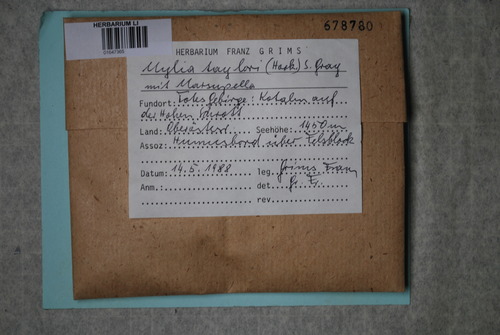 HERBARIUM LI
678780
HERBARIUM FRANZ GRIMS
Mylia taylori (Hook.) S. Gray
mit Marsupella
Fundort: Totes Gebirge: auf
der Hohen
Land: Oberösterr. Seehöhe: 1450 m
Assoz: über Felsblock
Datum: 14.5.1988 leg. Grims Franz
Anm.: det. Gr. F.
rev.